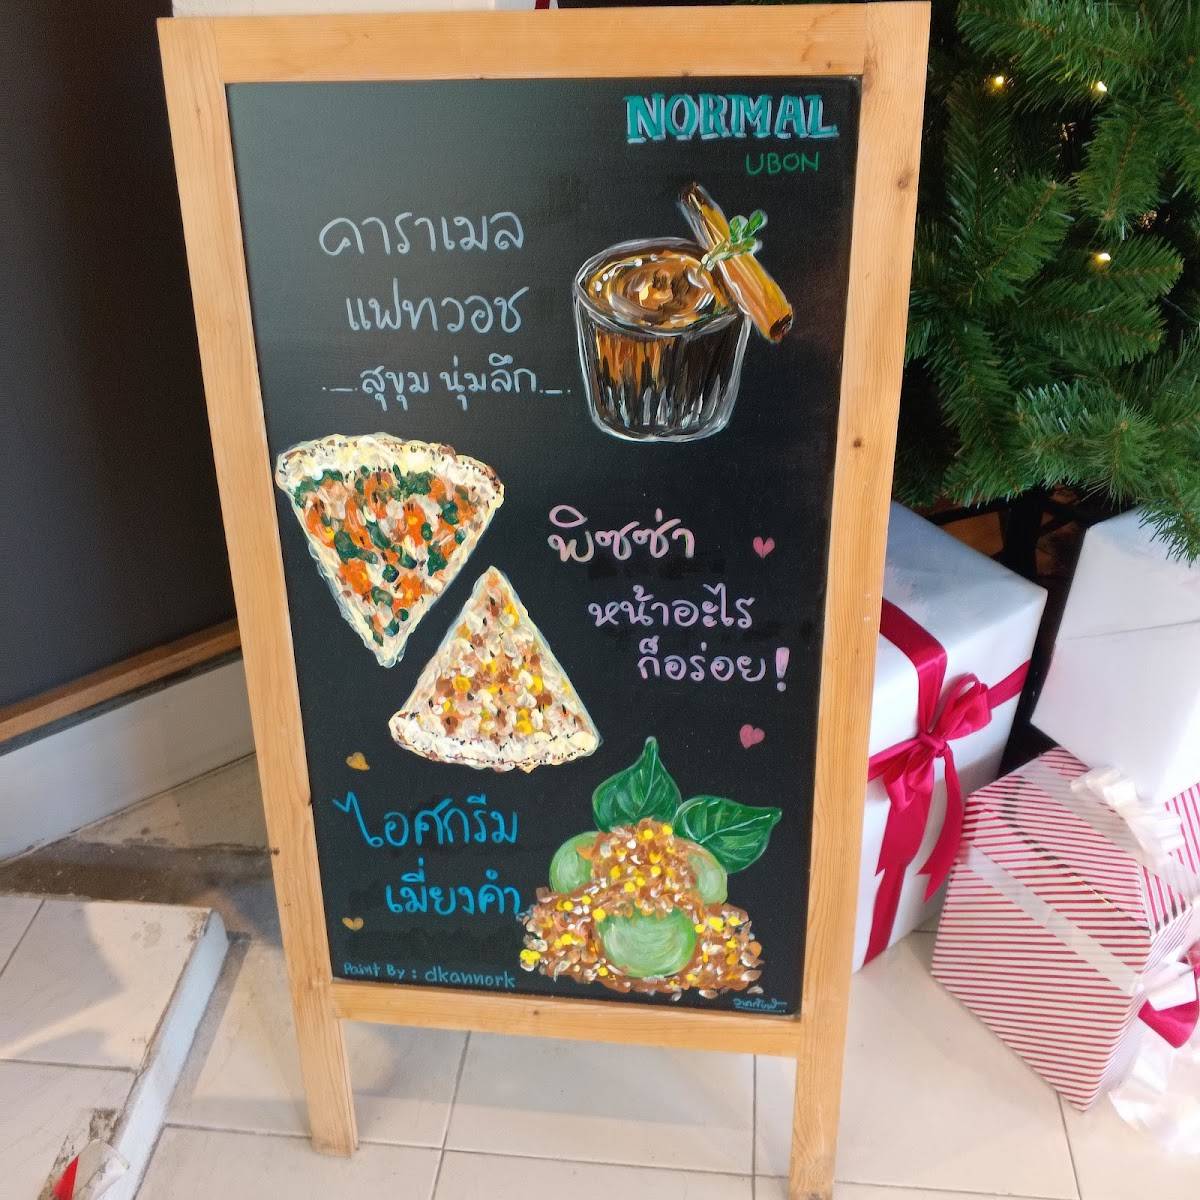 NORMAL
UBON
คาราเมล
แฟทวอช
สุขุม นุ่มลึก
พิซซ่า
หน้าอะไร
ก็อร่อย!
ไอศกรีม
เมี่ยงคำ
Paint By : dkannork